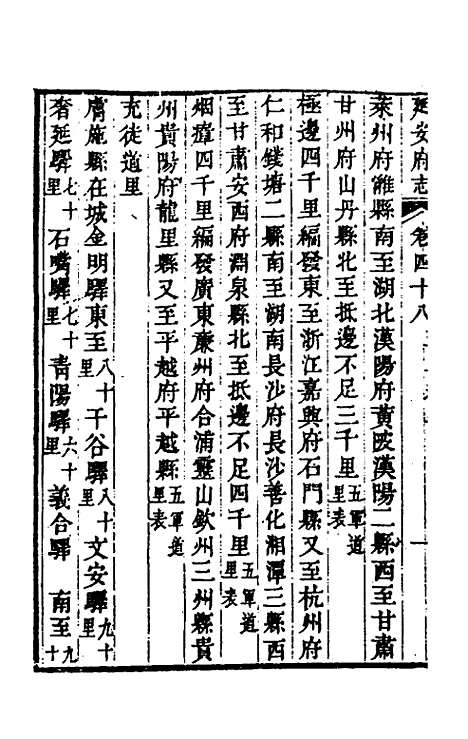 延安府志 卷四十八
萊州府濰縣南至湖北漢陽府黄陂漢陽二縣西至甘肅
甘州府山丹縣北至抵邊不足三千里五軍道里表
極邊四千里編發東至浙江嘉興府石門縣又至杭州府
仁和錢塘二縣南至湖南長沙府長沙善化湘潭三縣西
至甘肅安西府淵泉縣北至抵邊不足四千里五軍道里表
烟瘴四千里編發廣東廉州府合浦靈山欽州三州縣貴
州貴陽府龍里縣又至平越府平越縣五軍道里表
充徒道里
膚施縣在城金明驛東至八十里干谷驛八十里文安驛九十里
奢延驛七十里石嘴驛七十里青陽驛六十里義合驛 南至九十